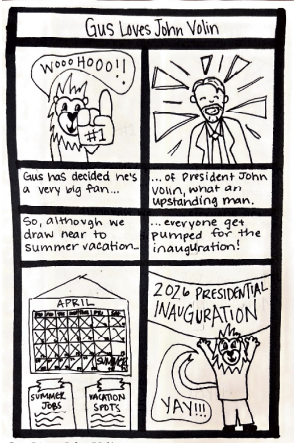 Gus Loves John Volin
WOOO HOOO!!
#1
Gus has decided he's
a very big fan...
...of President John
Volin, what an
upstanding man.
So, although we
draw near to
summer vacation...
...everyone get
pumped for the
inauguration!
APRIL
SUMMER
SUMMER
JOBS
VACATION
SPOTS
2026 PRESIDENTIAL
INAUGURATION
YAY!!!